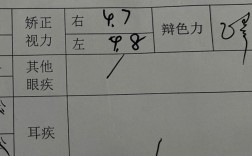 矫正视力 右 4.7 辩色力
左 4.8
其他眼疾 /
耳疾